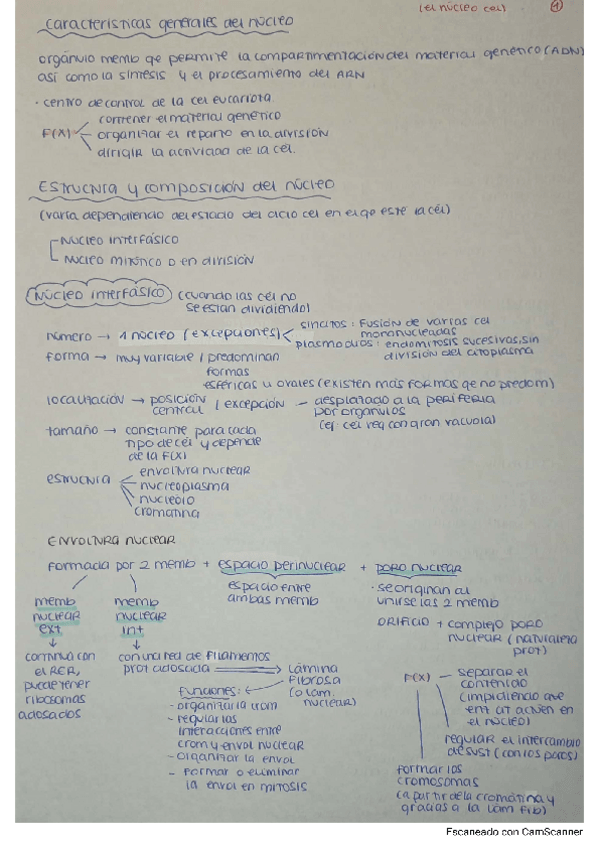 (el núcleo cel) 1
características generales del núcleo
orgánulo memb qe permite la compartimentación del material genético (ADN)
así como la síntesis y el procesamiento del ARN
· centro de control de la cel eucariota
F(X) contener el material genético
organizar el reparto en la división
dirigir la actividad de la cel.
Estructra y composición del núcleo
(varía dependiendo del estado del ciclo cel en el qe esté la cél)
Núcleo interfásico
Núcleo mitótico o en división
Núcleo interfásico (cuando las cel no
se están dividiendo)
número → 1 núcleo (excepciones) sincitos: fusión de varias cel
mononucleadas
plasmodios: endomitosis sucesivas, sin
división del citoplasma
forma → muy variable / predominan
formas
esféricas u ovales (existen más formas qe no predom)
localización → posición
central / excepción – desplazado a la periferia
por orgánulos
(ej: cel veg con gran vacuola)
tamaño → constante para cada
tipo de cel y depende
de la F(X)
estructra envoltura nuclear
nucleoplasma
nucleolo
cromatina
ENVOLTURA NUCLEAR
Formada por 2 memb + espacio perinuclear + poro nuclear
espacio entre
ambas memb
· se originan al
unirse las 2 memb
ORIFICIO + complejo poro
nuclear (naturaleza
prot)
memb
nuclear
ext
↓
continua con
el RER,
puede tener
ribosomas
adosados
memb
nuclear
int
↓
con una red de filamemos
prot adosada → lámina
fibrosa
(o lam.
nuclear)
funciones:
- organizar la crom
- regular las
interacciones entre
crom y envol nuclear
- organizar la envol
- formar o eliminar
la envol en mitosis
F(X) – separar el
contenido
(impidiendo que
en el núcleo)
regular el intercambio
de sust (con los poros)
formar los
cromosomas
(a partir de la cromatina y
gracias a la lam fib)
Escaneado con CamScanner